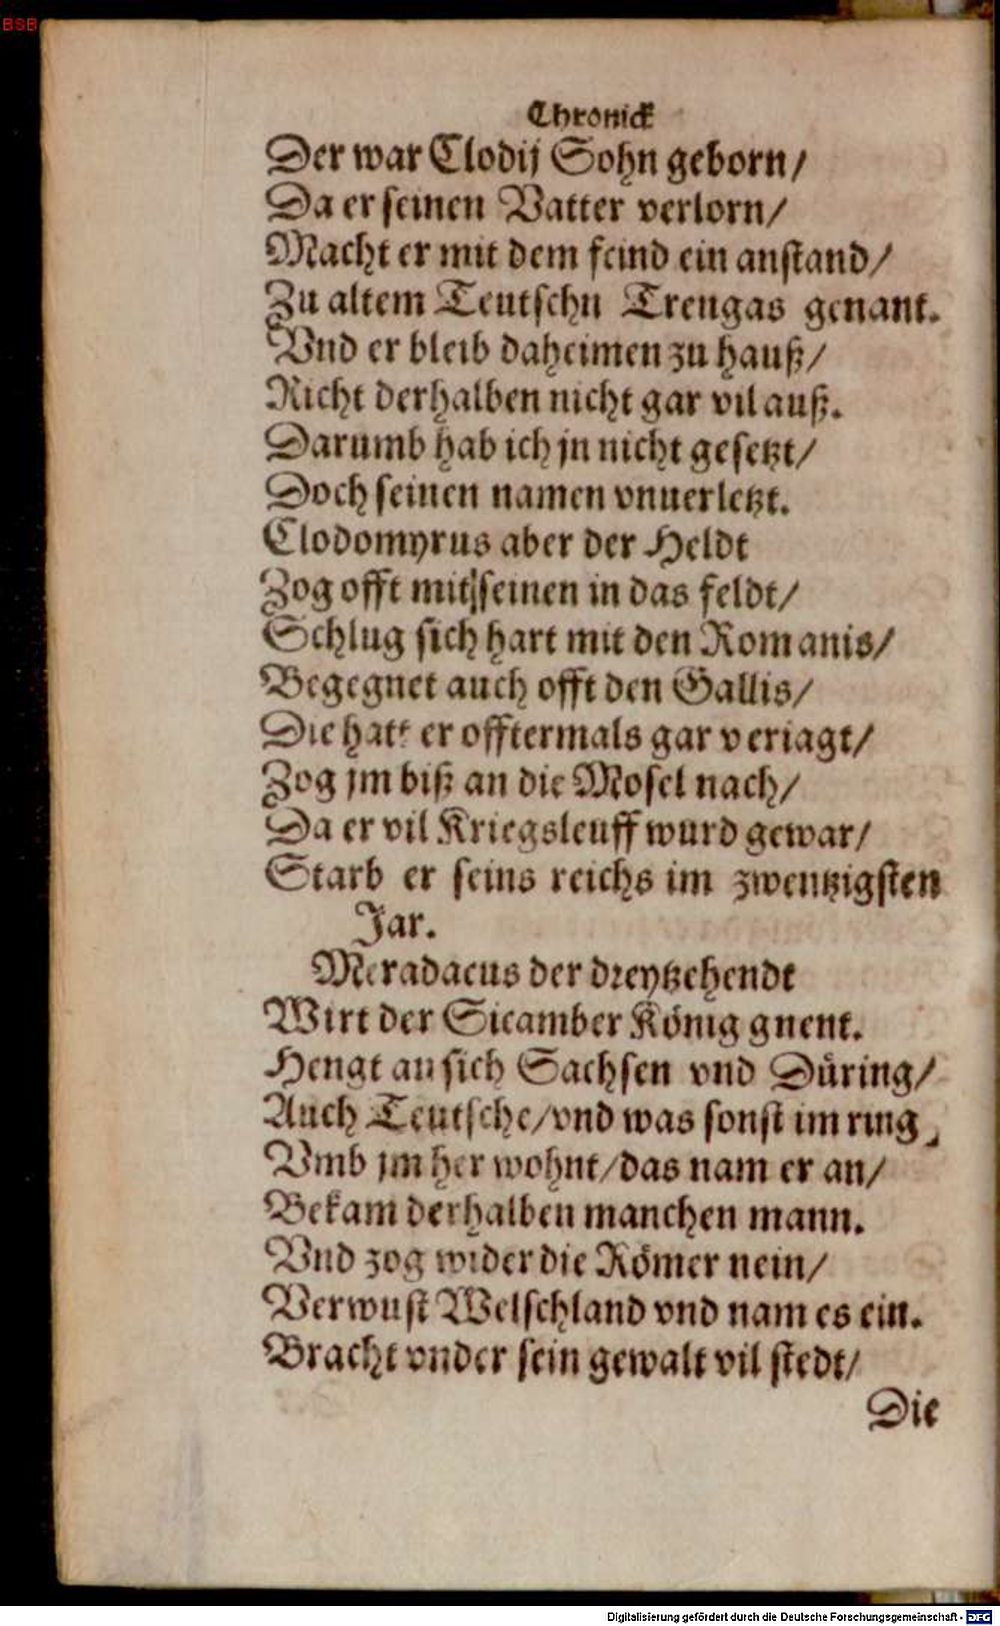 BSB
Chronick
Der war Clodij Sohn geborn/
Da er seinen Vatter verlorn/
Macht er mit dem feind ein anstand/
Zu altem Teutschn Trengas genant.
Vnd er bleib daheimen zu hauß/
Richt derhalben nicht gar vil auß.
Darumb hab ich jn nicht gesetzt/
Doch seinen namen vnuerletzt.
Clodomyrus aber der Heldt
Zog offt mit seinen in das feldt/
Schlug sich hart mit den Romanis/
Begegnet auch offt den Gallis/
Die hatt er offtermals gar veriagt/
Zog jm biß an die Mosel nach/
Da er vil Kriegsleuff wurd gewar/
Starb er seins reichs im zwentzigsten
Jar.
Meradacus der dreytzehendt
Wirt der Sicamber König gnent.
Hengt an sich Sachsen vnd Düring/
Auch Teutsche/vnd was sonst im ring
Vmb jm her wohnt/das nam er an/
Bekam derhalben manchen mann.
Vnd zog wider die Römer nein/
Verwust Welschland vnd nam es ein.
Bracht vnder sein gewalt vil stedt/
Die
Digitalisierung gefördert durch die Deutsche Forschungsgemeinschaft - DFG